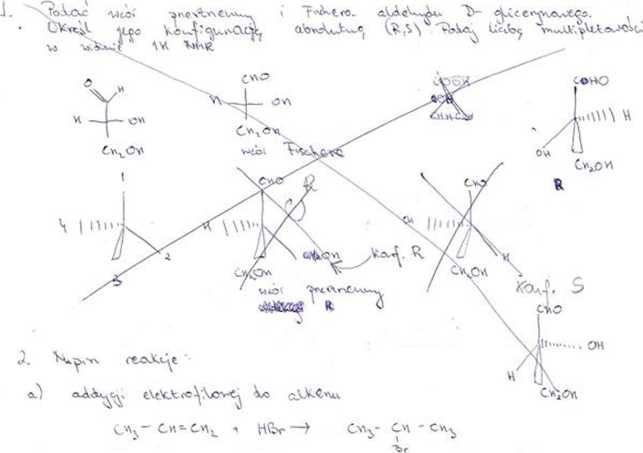 1. Podać wzór przestrzenny i Fischera aldehydu D-glicerynowego.
Określ jego konfigurację absolutną (R,S) Podaj liczbę multipletowości
w widmie 1H NMR
O H
H OH
CH2OH
CHO
H OH
CH2OH
wzór Fischera
COOH
OH
COHO
H
OH
CH2OH
R
1
4
2
3
CHO
R
H
CH2OH
CH2OH
konf. R
wzór przestrzenny
R
CHO
OH
H
CH2OH
konf. S
CHO
OH
H
CH2OH
2. Napisz reakcje:
a) addycji elektrofilowej do alkenu
CH3-CH=CH2 + HBr → CH3-CH-CH3
Br